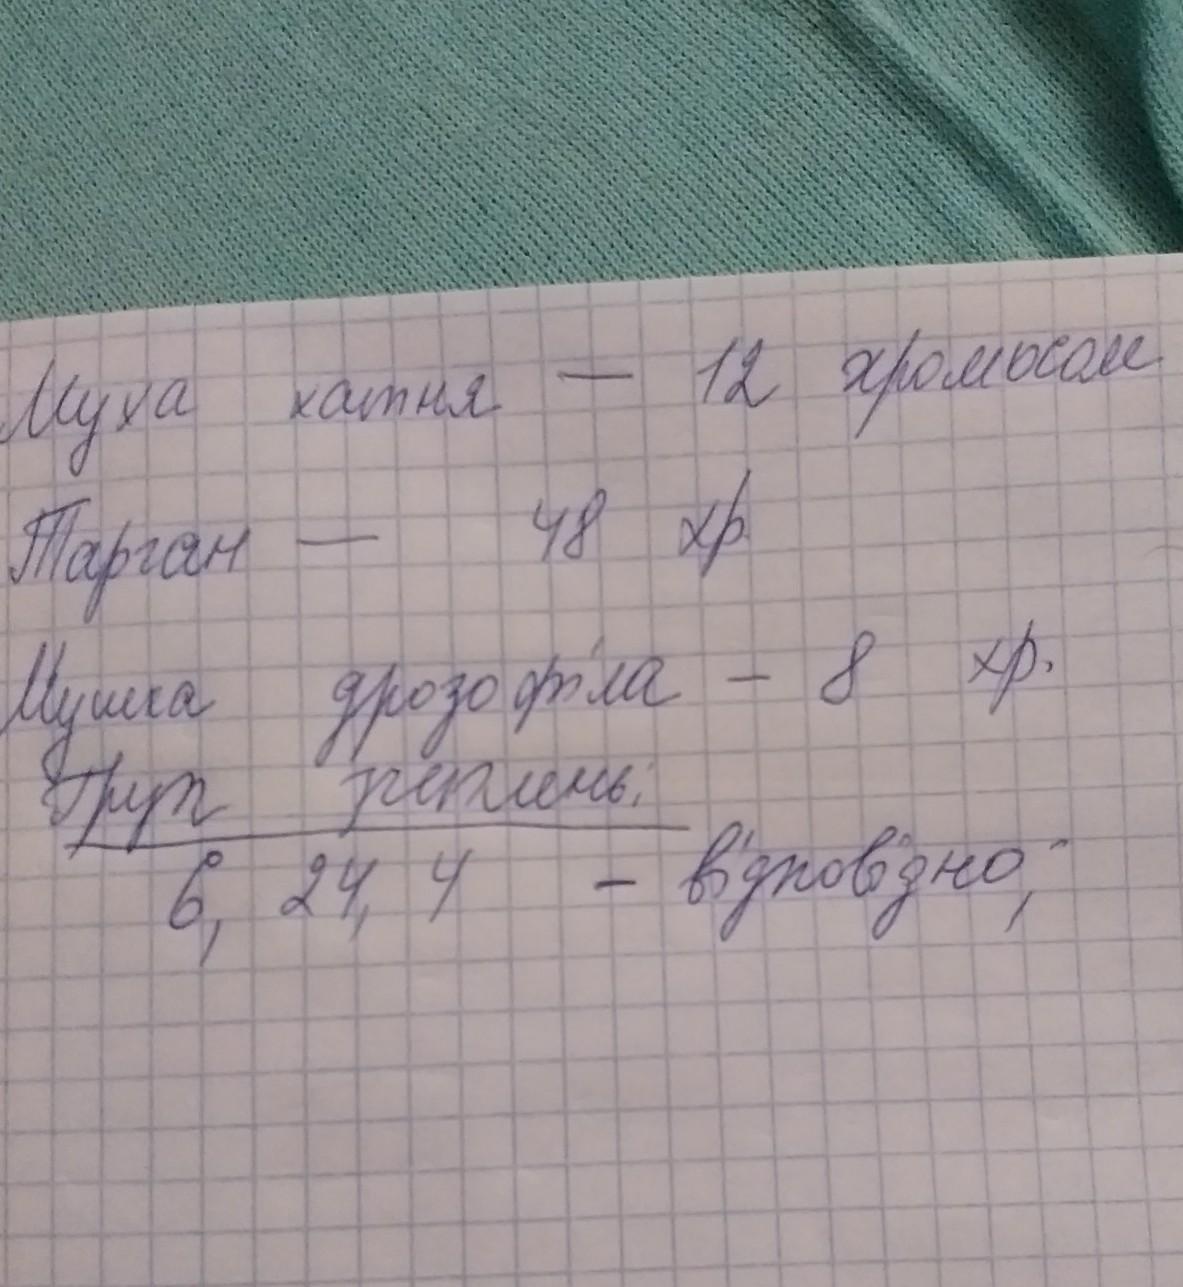 Муха хатня — 12 хромосом
Тарган — 48 хр.
Мушка дрозофіла – 8 хр.
Груп зчеплень:
6, 24, 4 – відповідно;